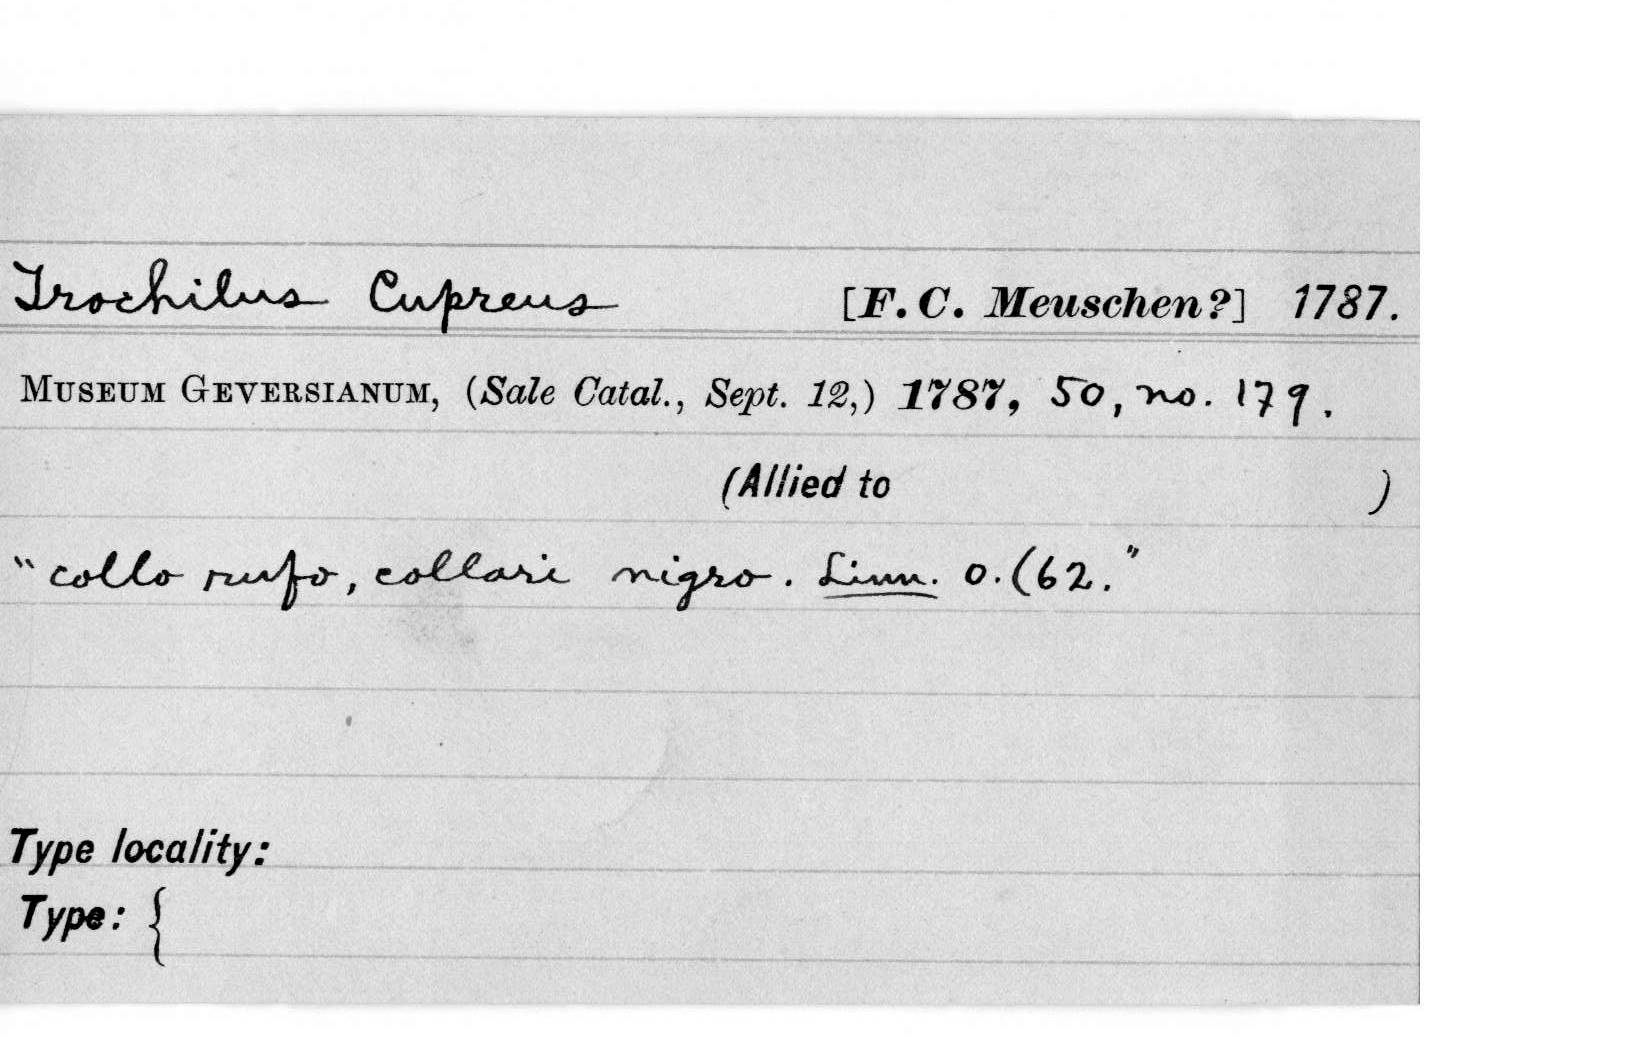 Trochilus Cupreus [F. C. Meuschen?] 1787.
MUSEUM GEVERSIANUM, (Sale Catal., Sept. 12,) 1787, 50, no. 179.
(Allied to )
"collo rufo, collari nigro. Linn. o. (62."
Type locality:
Type: {